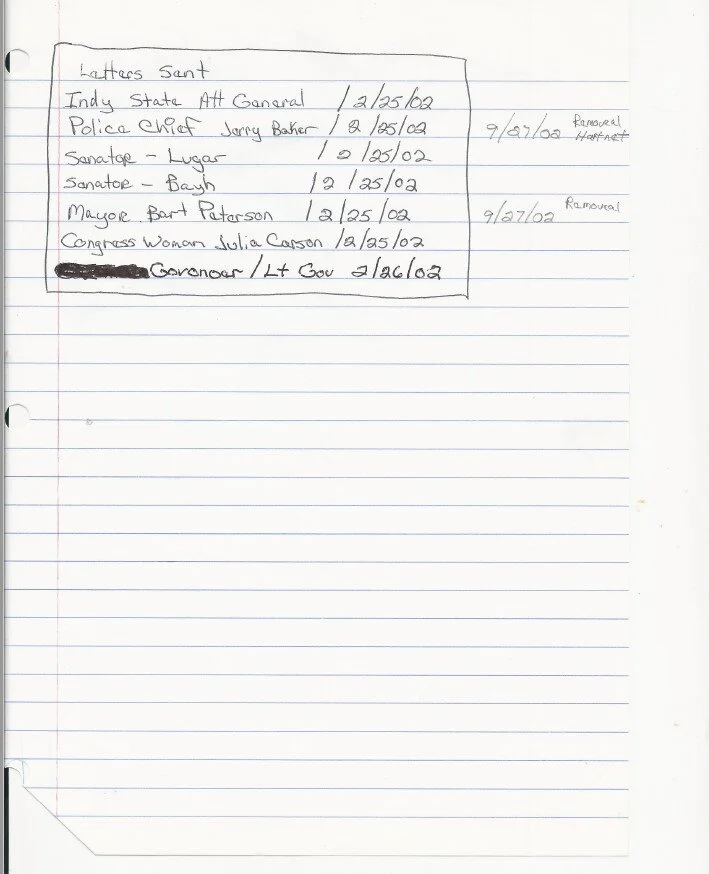 Letters Sent
Indy State Att General / 2/25/02
Police Chief Jerry Baker / 2/25/02 9/27/02 Removal
Senator - Lugar / 2/25/02
Senator - Bayh / 2/25/02
Mayor Bart Peterson / 2/25/02 9/27/02 Removal
Congress Woman Julia Carson / 2/25/02
Goveneer / Lt Gov 2/26/02